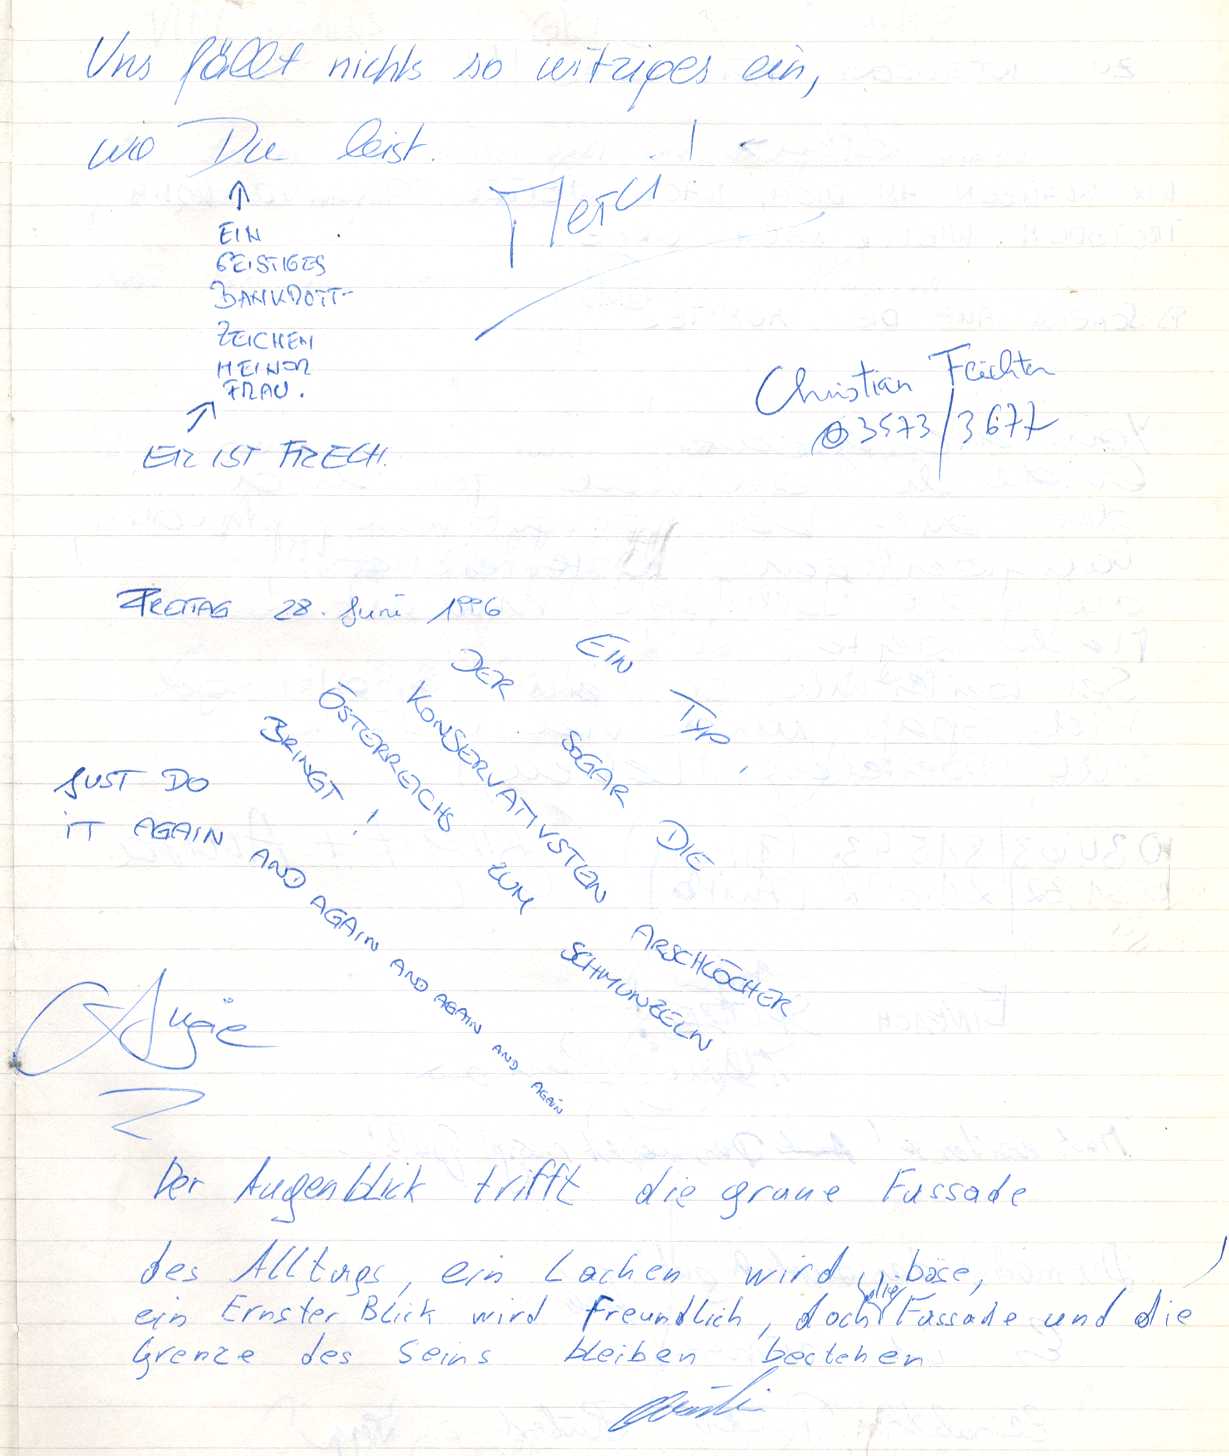 Uns fällt nichts so witziges ein,
wo Du leist.
Merci!
EIN
GEISTIGES
BANKROTT-
ZEICHEN
MEINER
FRAU.
ER IST FRECH.
Christian Feichter
03573/3677
FREITAG 28. Juni 1996
EIN TYP,
DER SOGAR DIE
KONSERVATIVSTEN ARSCHLÖCHER
ÖSTERREICHS ZUM SCHMUNZELN
BRINGT!
JUST DO
iT AGAIN AND AGAIN AND AGAIN AND AGAIN
Angie
Der Augenblick trifft die graue Fassade
des Alltags, ein Lachen wird böse,
ein Ernster Blick wird freundlich, doch die Fassade und die
Grenze des Seins bleiben bestehen